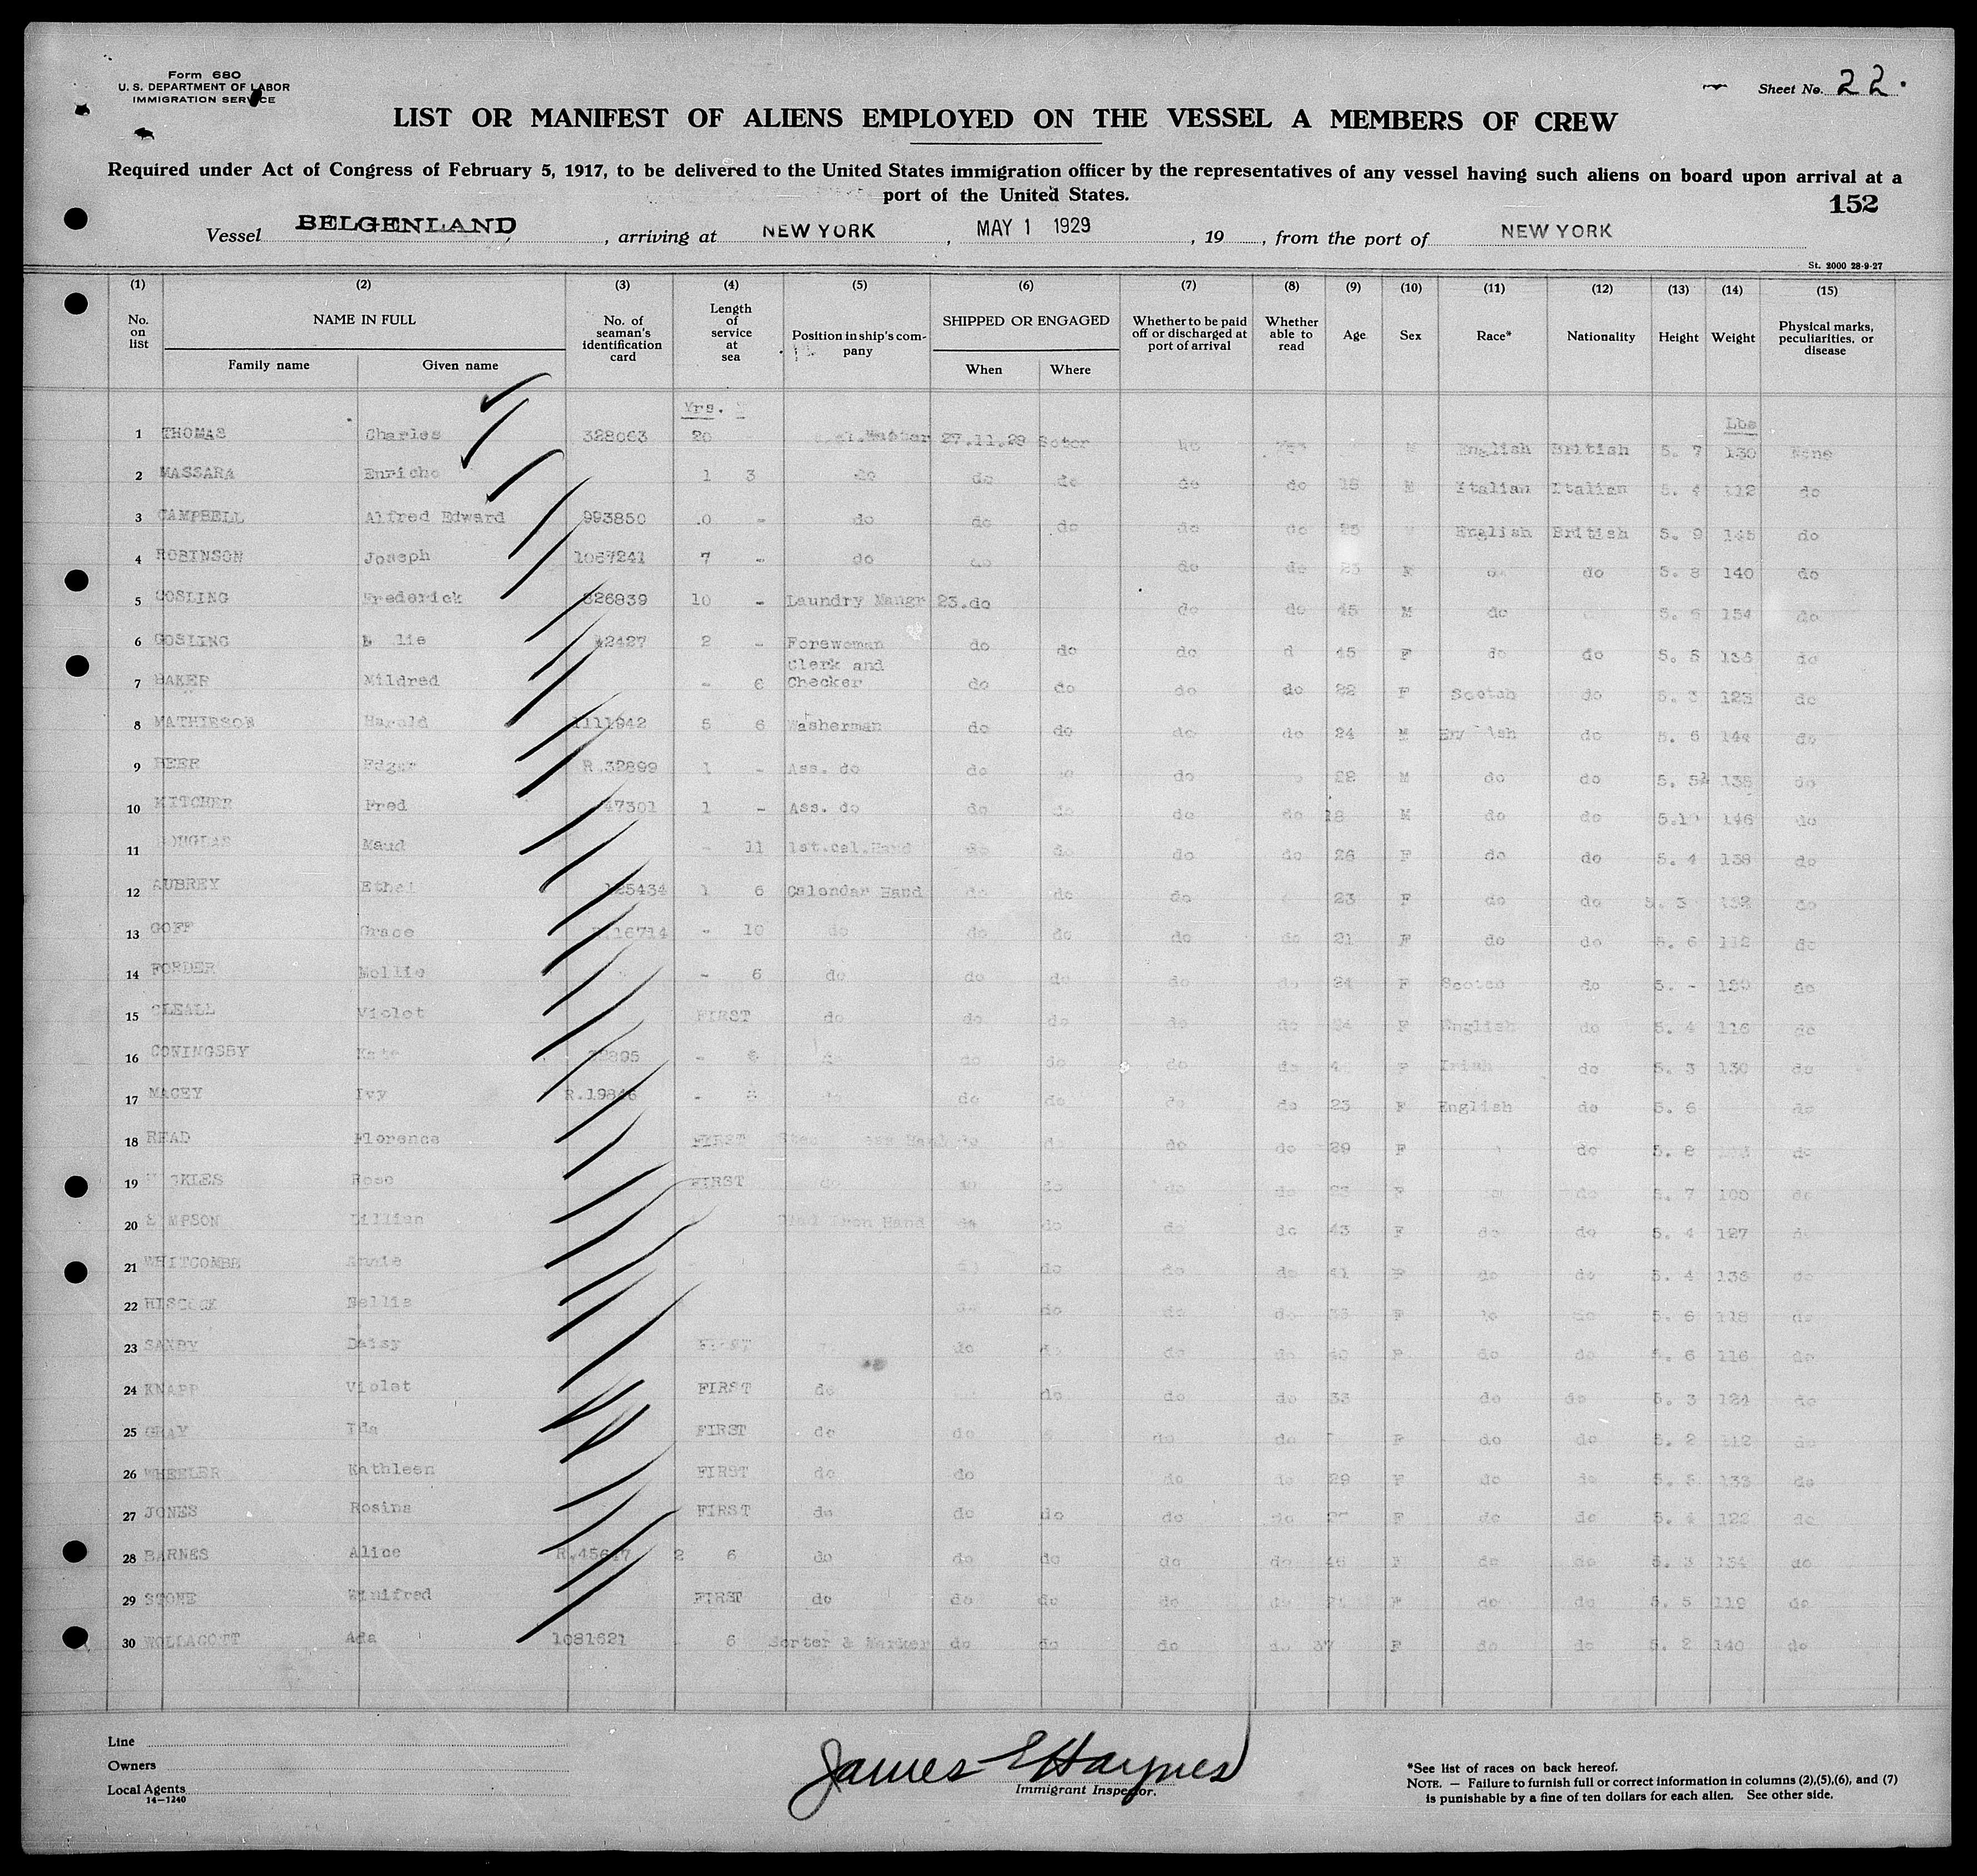 Form 680
U. S. DEPARTMENT OF LABOR
IMMIGRATION SERVICE
Sheet No. 22.
LIST OR MANIFEST OF ALIENS EMPLOYED ON THE VESSEL A MEMBERS OF CREW
Required under Act of Congress of February 5, 1917, to be delivered to the United States immigration officer by the representatives of any vessel having such aliens on board upon arrival at a
port of the United States.
152
Vessel BELGENLAND, arriving at NEW YORK, MAY 1 1929, 19, from the port of NEW YORK
St. 2000 28-9-27
(1) (2) (3) (4) (5) (6) (7) (8) (9) (10) (11) (12) (13) (14) (15)
No. on list NAME IN FULL Family name Given name No. of seaman's identification card Length of service at sea Position in ship's company SHIPPED OR ENGAGED When Where Whether to be paid off or discharged at port of arrival Whether able to read Age Sex Race* Nationality Height Weight Physical marks, peculiarities, or disease
Yrs. Lbs
1 THOMAS Charles 328063 20 - 27.11.29 No M English British 5. 7 130 None
2 MASSARA Enricho 1 3 do do do do do 18 M Italian Italian 5. 4 112 do
3 CAMPBELL Alfred Edward 993850 - do do do do do 25 English British 5. 9 145 do
4 ROBINSON Joseph 1067241 7 - do do do do do 5. 8 140 do
5 GOSLING Frederick 826839 10 - Laundry Mangr 23.do do do 45 M do 5. 6 154 do
6 GOSLING 2 - Forewoman do do do 45 F do do 5. 5 do
7 BAKER Mildred - 6 Clerk and Checker do do do do 22 F Scotch do 5. 3 123 do
8 MATHIESON Harold 1111942 5 6 Washerman do do do do 24 M do 5. 6 144 do
9 BEER Edgar R.32899 1 - Ass. do do do 22 M do do 5. 5½ 138 do
10 KITCHER Fred 47301 1 - Ass. do do do do do 18 M do do 146 do
11 DOUGLAS Maud - 11 1st.cal.Hand do do do do 26 F do do 5. 4 138 do
12 AUBREY Ethel 125434 1 6 Calendar Hand do do do 23 F do do 5. 3 132 do
13 GOFF Grace 16714 - 10 do do do do do 21 F do do 5. 6 112 do
14 FORDER Mollie - 6 do do do do do 24 F Scotch do 5. - do
15 CLEALL Violet FIRST do do do do do 24 F English do 5. 4 116 do
16 CONINGSBY Kate - do do do do do F Irish do 5. 3 130 do
17 MACEY Ivy R.19846 - 8 do do do do do 23 F English do 5. 6 do
18 READ Florence FIRST do do do do 29 F do 5. 8 do
19 Rose FIRST do do do do do F do do 5. 7 100 do
20 SIMPSON Lillian do do do do 43 F do do 5. 4 127 do
21 WHITCOMBE Annie do do do 41 F do do 5. 4 136 do
22 HISCOCK Nellie do do do do F do do 5. 6 118 do
23 SAXBY Daisy FIRST do do do do 40 F do do 5. 6 116 do
24 KNAPP Violet FIRST do do do do 33 do do 5. 3 124 do
25 GRAY Ida FIRST do do do do F do do 5. 2 112 do
26 WHEELER Kathleen FIRST do do do do 29 F do do 5. 5 133 do
27 JONES Rosina FIRST do do do do do F do do 5. 4 122 do
28 BARNES Alice 2 6 do do do do do 46 F do do 5. 3 134 do
29 STONE Winifred FIRST do do do do do F do do 5. 5 119 do
30 WOLLACOTT Ada 1081621 - 6 Sorter & Marker do do do do 37 F do do 5. 2 140 do
Line
Owners
Local Agents
14-1240
James E Haynes
Immigrant Inspector.
*See list of races on back hereof.
NOTE. — Failure to furnish full or correct information in columns (2),(5),(6), and (7)
is punishable by a fine of ten dollars for each alien. See other side.